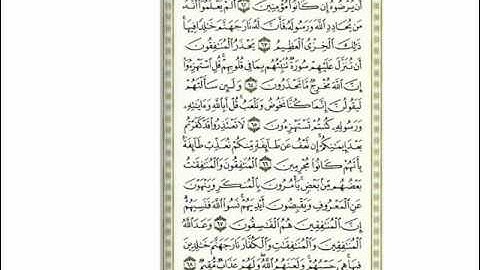 أَن يُرْضُوهُ إِن كَانُوا۟ مُؤْمِنِينَ ٦٢ أَلَمْ يَعْلَمُوٓا۟ أَنَّهُۥ
مَن يُحَادِدِ ٱللَّهَ وَرَسُولَهُۥ فَأَنَّ لَهُۥ نَارَ جَهَنَّمَ خَٰلِدًا فِيهَا
ذَٰلِكَ ٱلْخِزْىُ ٱلْعَظِيمُ ٦٣ يَحْذَرُ ٱلْمُنَٰفِقُونَ
أَن تُنَزَّلَ عَلَيْهِمْ سُورَةٌ تُنَبِّئُهُم بِمَا فِى قُلُوبِهِمْ ۚ قُلِ ٱسْتَهْزِءُوٓا۟
إِنَّ ٱللَّهَ مُخْرِجٌ مَّا تَحْذَرُونَ ٦٤ وَلَئِن سَأَلْتَهُمْ
لَيَقُولُنَّ إِنَّمَا كُنَّا نَخُوضُ وَنَلْعَبُ ۚ قُلْ أَبِٱللَّهِ وَءَايَٰتِهِۦ
وَرَسُولِهِۦ كُنتُمْ تَسْتَهْزِءُونَ ٦٥ لَا تَعْتَذِرُوا۟ قَدْ كَفَرْتُم
بَعْدَ إِيمَٰنِكُمْ ۚ إِن نَّعْفُ عَن طَآئِفَةٍ مِّنكُمْ نُعَذِّبْ طَآئِفَةًۢ
بِأَنَّهُمْ كَانُوا۟ مُجْرِمِينَ ٦٦ ٱلْمُنَٰفِقُونَ وَٱلْمُنَٰفِقَٰتُ
بَعْضُهُم مِّنۢ بَعْضٍ ۚ يَأْمُرُونَ بِٱلْمُنكَرِ وَيَنْهَوْنَ
عَنِ ٱلْمَعْرُوفِ وَيَقْبِضُونَ أَيْدِيَهُمْ ۚ نَسُوا۟ ٱللَّهَ فَنَسِيَهُمْ ۗ
إِنَّ ٱلْمُنَٰفِقِينَ هُمُ ٱلْفَٰسِقُونَ ٦٧ وَعَدَ ٱللَّهُ
ٱلْمُنَٰفِقِينَ وَٱلْمُنَٰفِقَٰتِ وَٱلْكُفَّارَ نَارَ جَهَنَّمَ خَٰلِدِينَ
فِيهَا ۚ هِىَ حَسْبُهُمْ ۚ وَلَعَنَهُمُ ٱللَّهُ ۖ وَلَهُمْ عَذَابٌ مُّقِيمٌ ٦٨